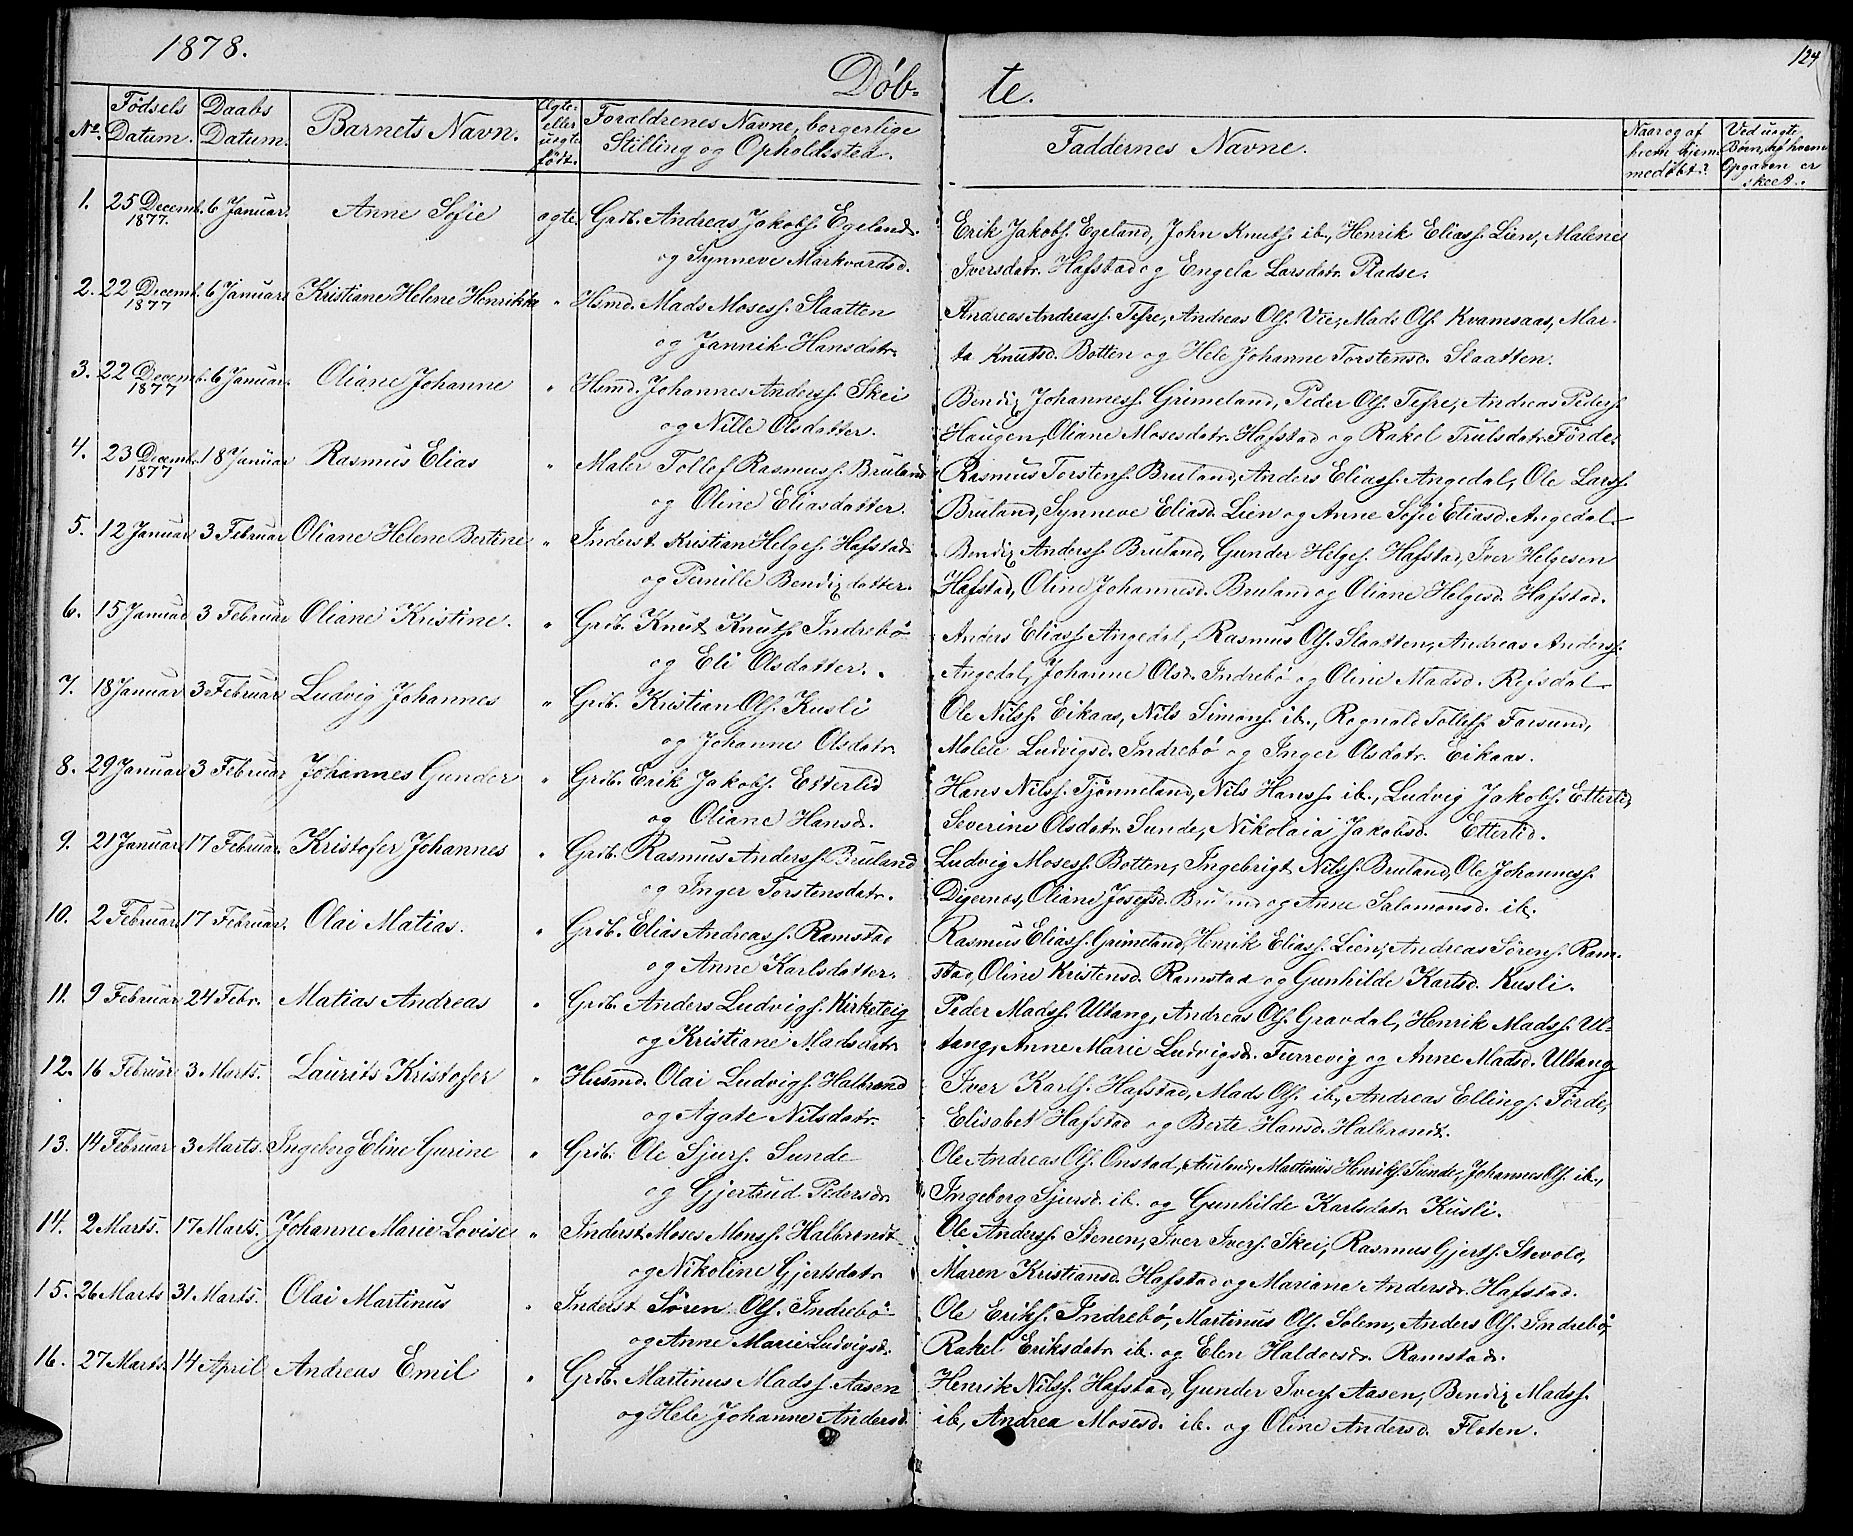 1878.
124
Döb-
te.
No.
Födsels Datum.
Daabs Datum.
Barnets Navn.
Ægte eller uægte födt.
Forældrenes Navne, borgerlige Stilling og Opholdssted.
Faddernes Navne.
Naar og af hvem hjemmedöbt?
Ved uægte Börn, og hvem Opgaven er skeet.
1. 25 Decemb. 1877. 6 Januar. Anne Sofie ægte. Grdb. Andreas Jakobs. Egeland.
og Synneve Markvardsd.
Erik Jakobs. Egeland, John Knuts. ib., Henrik Eliass. Lien, Malene
Iversdatr. Hafstad og Engela Larsdatr. Pladse.
2. 22 Decemb. 1877 6 Januar Kristiane Helene Henrikka " Hsmd. Mads Moses. Slaatten
og Jannik Hansdatr.
Andreas Andreass. Tefre, Andreas Ols. Vie, Mads Ols. Kvamsaas, Mar-
ta Knutsd. Botten og Hele Johanne Torstensd. Slaatten.
3. 22 Decemb. 1877 6 Januar. Oliane Johanne " Hsmd. Johannes Anderss. Skei
og Nille Olsdatter.
Bendix Johanness. Grimeland, Peder Ols. Tefre, Andreas Peders.
Haugen, Oliane Mosesdatr. Hafstad og Rakel Trulsdatr. Förde.
4. 23 Decemb. 1877 18 Januar Rasmus Elias " Maler Tollef Rasmuss. Bruland
og Oline Eliasdatter.
Rasmus Torstens. Bruland, Anders Eliass. Angedal, Ole Larss.
Bruland, Synneve Eliasd. Lien og Anne Sofie Eliasd. Angedal.
5. 12 Januar 3 Februar Oliane Helene Bertine " Inderst. Kristian Helges. Hafstad
og Pernille Bendixdatter.
Bendix Anderss. Bruland, Gunder Helges. Hafstad, Iver Helgesen
Hafstad, Oline Johannesd. Bruland og Oliane Helgesd. Hafstad.
6. 15 Januar 3 Februar Oliane Kristine. " Grdb. Knut Knuts. Indrebö
og Eli Olsdatter.
Anders Eliass. Angedal, Rasmus Ols. Slaatten, Andreas Anderss.
Angedal, Johanne Olsd. Indrebö og Oline Madsd. Refsdal
7. 18 Januar 3 Februar Ludvig Johannes " Grdb. Kristian Ols. Kusli
og Johanne Olsdatr.
Ole Nilss. Eikaas, Nils Simons. ib., Rognald Tollefs. Farsund,
Malene Ludvigsd. Indrebö og Inger Olsdatr. Eikaas.
8. 29 Januar 3 Februar Johannes Gunder " Grdb. Erik Jakobs. Etterlid
og Oliane Hansd.
Hans Nilss. Tjönneland, Nils Hanss. ib., Ludvig Jakobs. Etterlid,
Severine Olsdatr. Sunde, Nikolaia Jakobsd. Etterlid.
9. 21 Januar 17 Februar. Kristofer Johannes " Grdb. Rasmus Anderss. Bruland
og Inger Torstensdatr.
Ludvig Moses. Botten, Ingebrigt Nilss. Bruland, Ole Johanness.
Digernes, Oliane Josefsd. Bruland og Anne Salamonsd. ib.
10. 2 Februar 17 Februar. Olai Matias. " Grdb. Elias Andreass. Ramstad
og Anne Karlsdatter.
Rasmus Eliass. Grimeland, Henrik Eliass. Lien, Andreas Sörens. Ram-
stad, Oline Kristensd. Ramstad og Gunhilde Karlsd. Kusli.
11. 9 Februar 24 Febr. Matias Andreas " Grdb. Anders Ludvigs. Kirketeig
og Kristiane Madsdatr.
Peder Madss. Ultang, Andreas Ols. Gravdal, Henrik Madss. Ul-
tang, Anne Marie Ludvigsd. Furrevig og Anne Madsd. Ultang
12. 16 Februar 3 Marts. Laurits Kristofer " Husmd. Olai Ludvigs. Halbrend
og Agate Nilsdatr.
Iver Karls. Hafstad, Mads Ols. ib., Andreas Ellings. Förde,
Elisabet Hafstad og Berte Hansd. Halbrendt.
13. 14 Februar 3 Marts. Ingeborg Eline Gurine " Grdb. Ole Sjurs. Sunde
og Gjertrud Pedersdr.
Ole Andreas Ols. Onstad, Aurland, Martinus Henriks. Sunde, Johannes Ols. ib.,
Ingeborg Sjursd. ib. og Gunhilde Karlsdatr. Kusli.
14. 2 Marts. 17 Marts. Johanne Marie Lovise " Inderst Moses Monss. Halbrendt
og Nikoline Gjertsdatr.
Ole Anderss. Stenen, Iver Ivers. Skei, Rasmus Gjerts. Stevold,
Maren Kristiansd. Hafstad og Mariane Andersdr. Hafstad.
15. 26 Marts 31 Marts. Olai Martinus " Inderst Sören Ols. Indrebö
og Anne Marie Ludvigsd.
Ole Eriks. Indrebö, Martinus Ols. Solem, Anders Ols. Indrebö,
Rakel Eriksdatr. ib. og Elen Haldorsdr. Ramstad.
16. 27 Marts. 14 April Andreas Emil " Grdb. Martinus Madss. Aasen
og Hele Johanne Andersd.
Henrik Nilss. Hafstad, Gunder Ivers. Aasen, Bendix Madss.
ib., Andrea Mosesd. ib. og Oline Andersd. Floten.